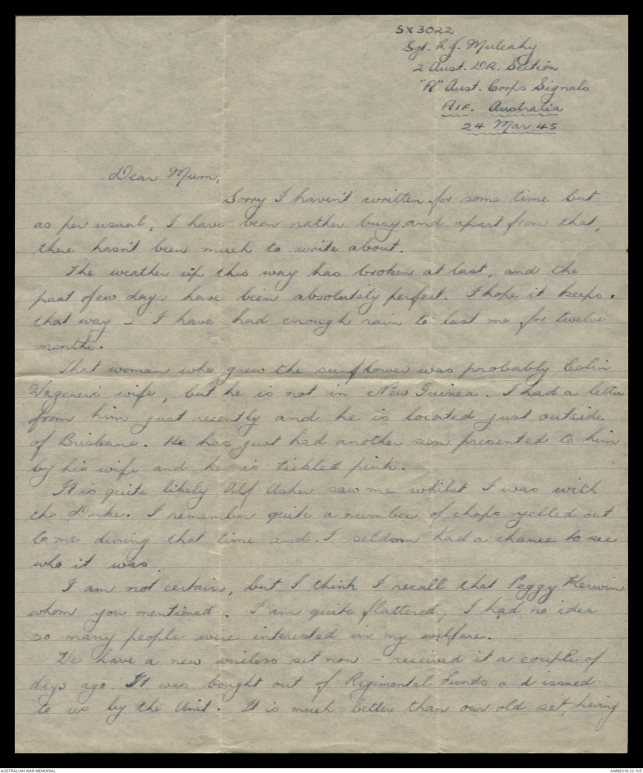 SX3022
Sgt. L.J. Mulcahy
2 Aust. D.R. Section
"A" Aust. Corps Signals
AIF. Australia
24 Mar 45
Dear Mum,
Sorry I haven't written for some time but
as per usual, I have been rather busy and apart from that,
there hasn't been much to write about.
The weather up this way has broken at last, and the
past few days have been absolutely perfect. I hope it keeps
that way - I have had enough rain to last me for twelve
months.
That woman who grew the sunflower was probably Colin
Wagener's wife, but he is not in New Guinea. I had a letter
from him just recently and he is located just outside
of Brisbane. He has just had another son presented to him
by his wife and he is tickled pink.
It is quite likely Alf Asher saw me whilst I was with
the Duke. I remember quite a number of chaps yelled out
to me during that time and I seldom had a chance to see
who it was.
I am not certain, but I think I recall that Peggy Kerwin
whom you mentioned. I am quite flattered, I had no idea
so many people were interested in my welfare.
We have a new wireless set now - received it a couple of
days ago. It was bought out of Regimental Funds and issued
to us by the Unit. It is much better than our old set, being
AUSTRALIAN WAR MEMORIAL